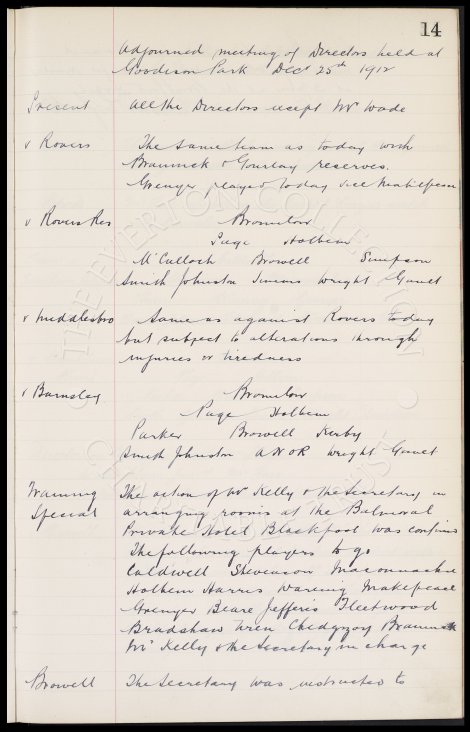 14
Adjourned meeting of Directors held at
Goodison Park Decr 25th 1912
Present All the Directors except Mr Wade
v Rovers The same team as today with
Brannick & Gourlay reserves.
Grenyer played today vice Makepeace
v Rovers Res Bromilow
Page Holbem
McCulloch Browell Simpson
Smith Johnston Simms Wright Gault
v Middlesbro Same as against Rovers today
but subject to alterations through
injuries or tiredness
v Barnsley Bromilow
Page Holbem
Parker Browell Kirby
Smith Johnston A N OR Wright Gault
Training The action of Mr Kelly & the Secretary in
Special arranging rooms at the Balmoral
Private Hotel Blackpool was confirmed
The following players to go
Caldwell Stevenson Maconnachie
Holbem Harris Wareing Makepeace
Grenyer Beare Jefferis Fleetwood
Bradshaw Wren Chedgzoy Brannick
Mr Kelly & the Secretary in charge
Browell The Secretary was instructed to
THE EVERTON COLLECTION